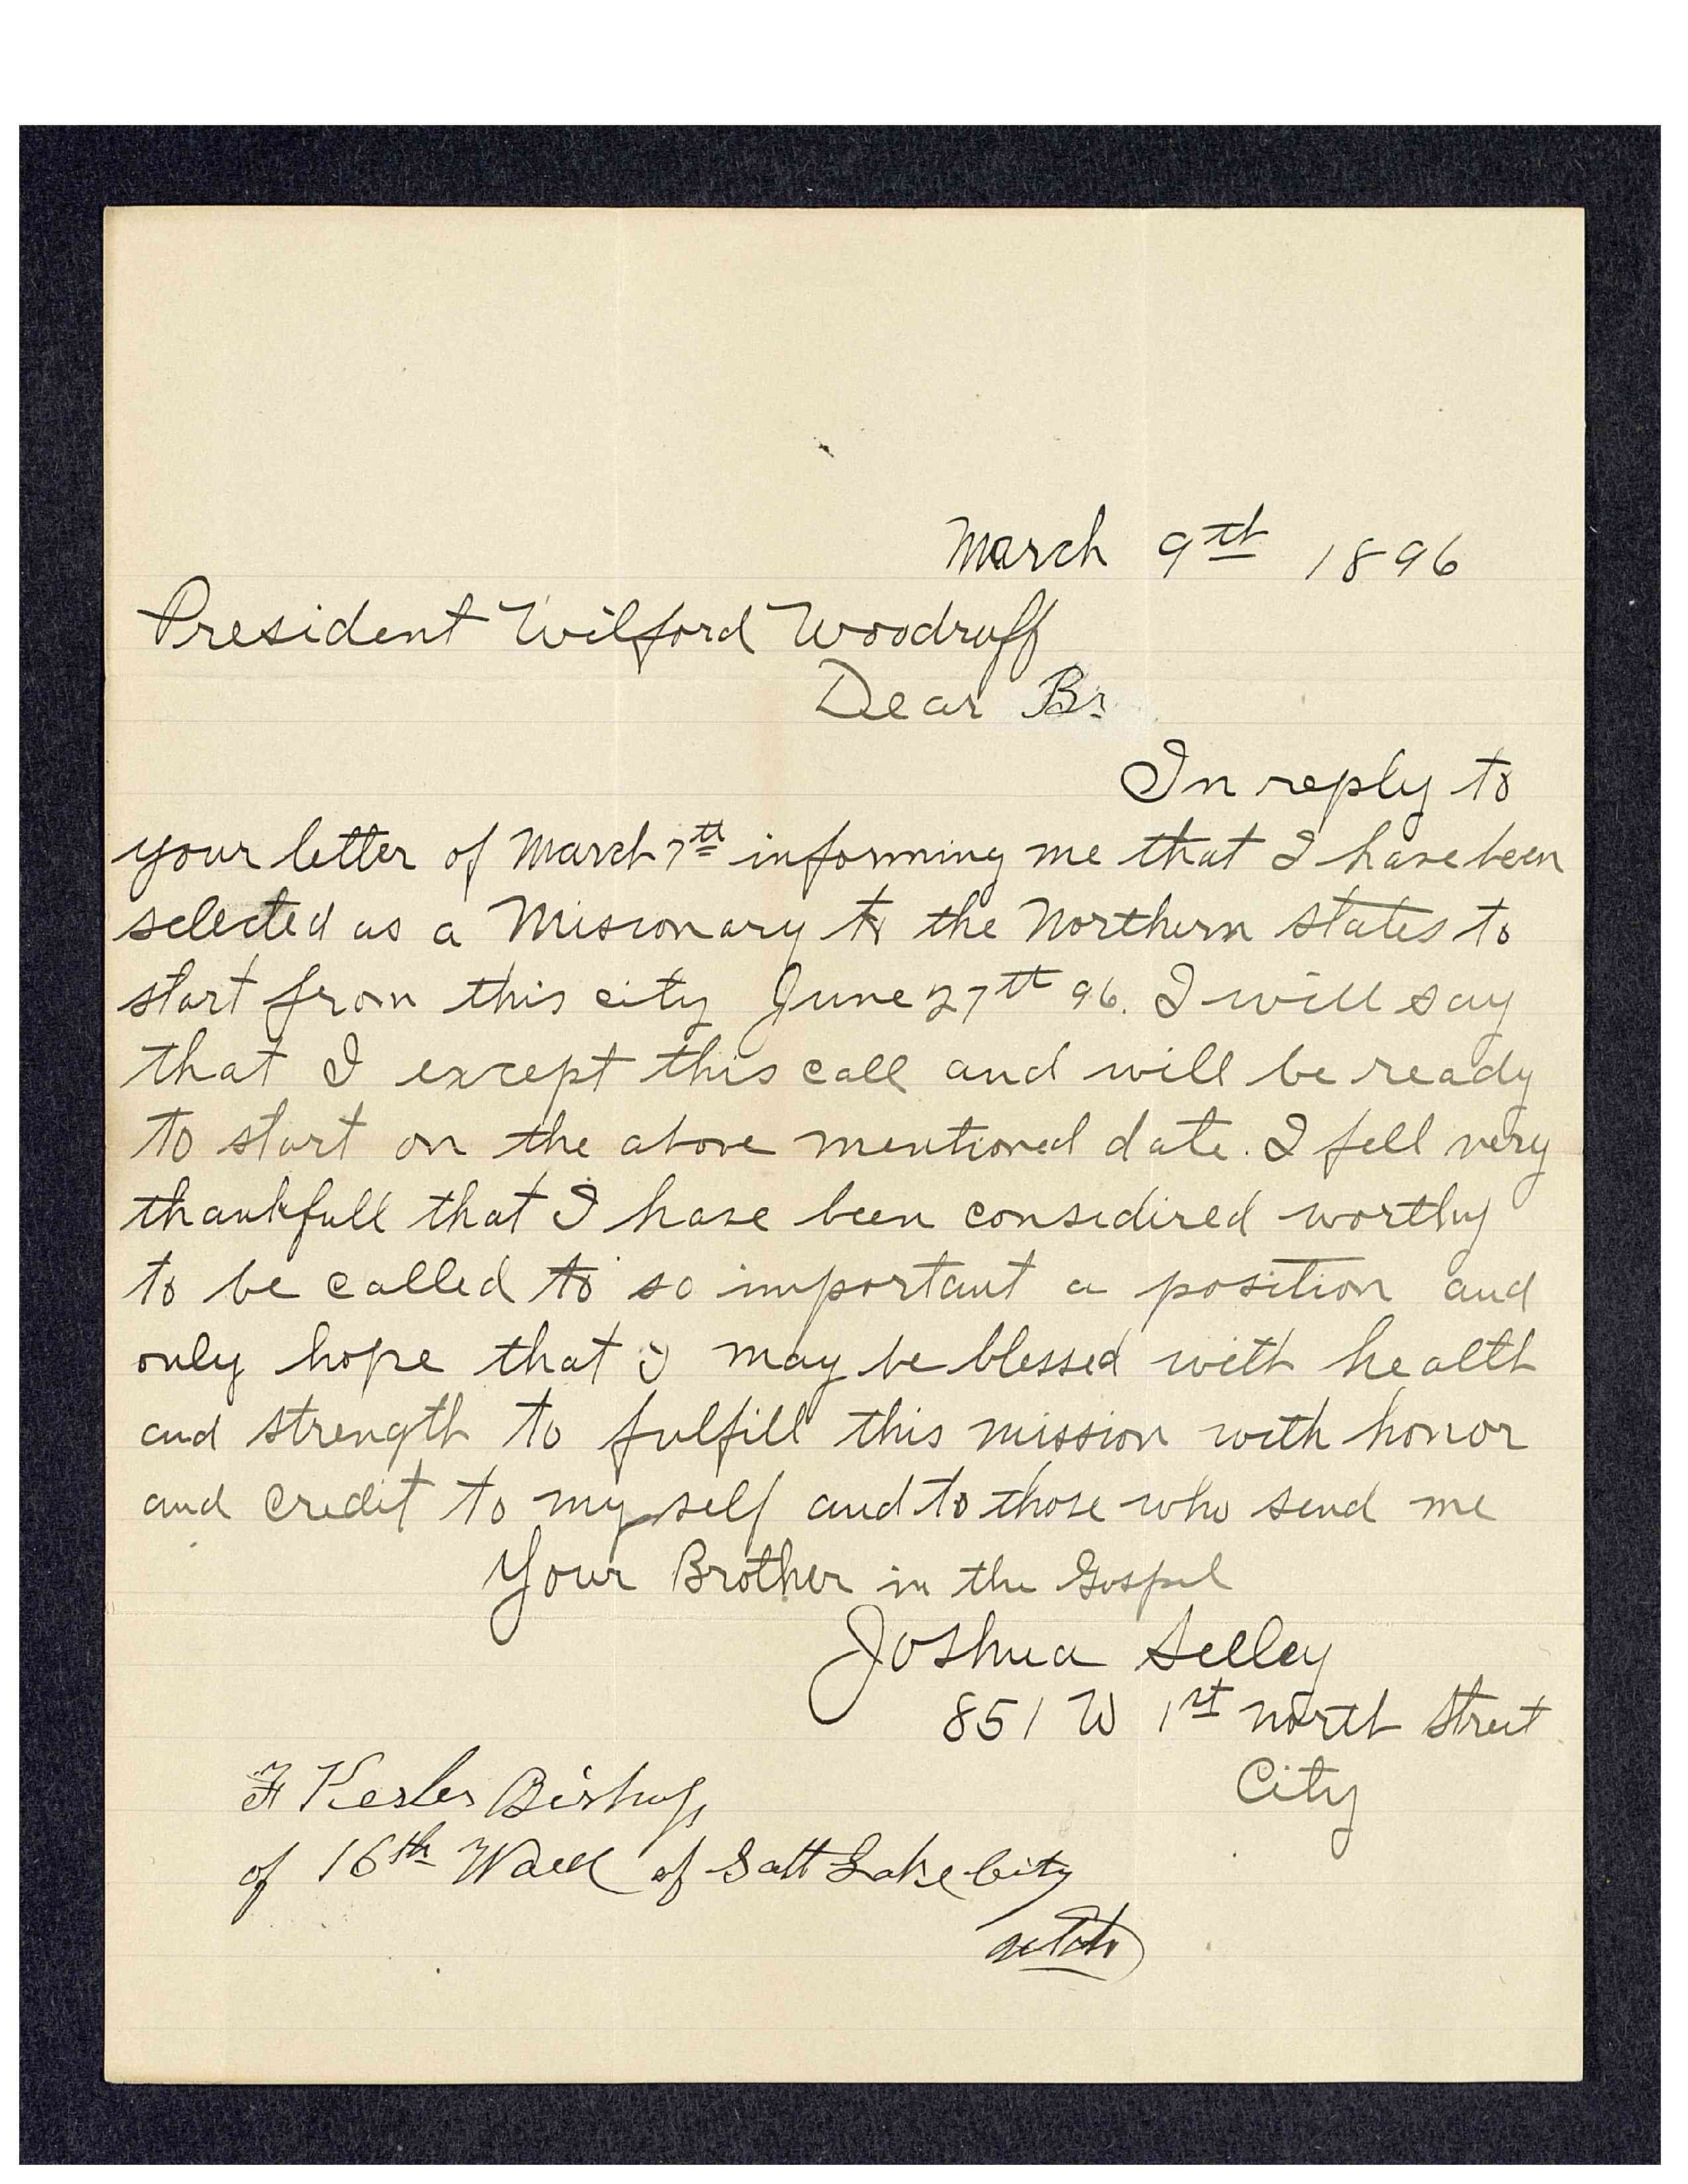 March 9th 1896
President Wilford Woodruff
Dear Br
In reply to
your letter of March 7th informing me that I have been
selected as a Misionary to the Northern States to
start from this city June 27th 96. I will say
that I except this call and will be ready
to start on the above mentioned date. I fell very
thankfull that I have been considired worthy
to be called to so important a position and
only hope that I may be blessed with health
and strength to fulfill this mission with honor
and credit to my self and to those who send me
Your Brother in the Gospel
Joshua Selley
851 W 1st North Street
City
F Kesler Bishop
of 16th Ward of Salt Lake City